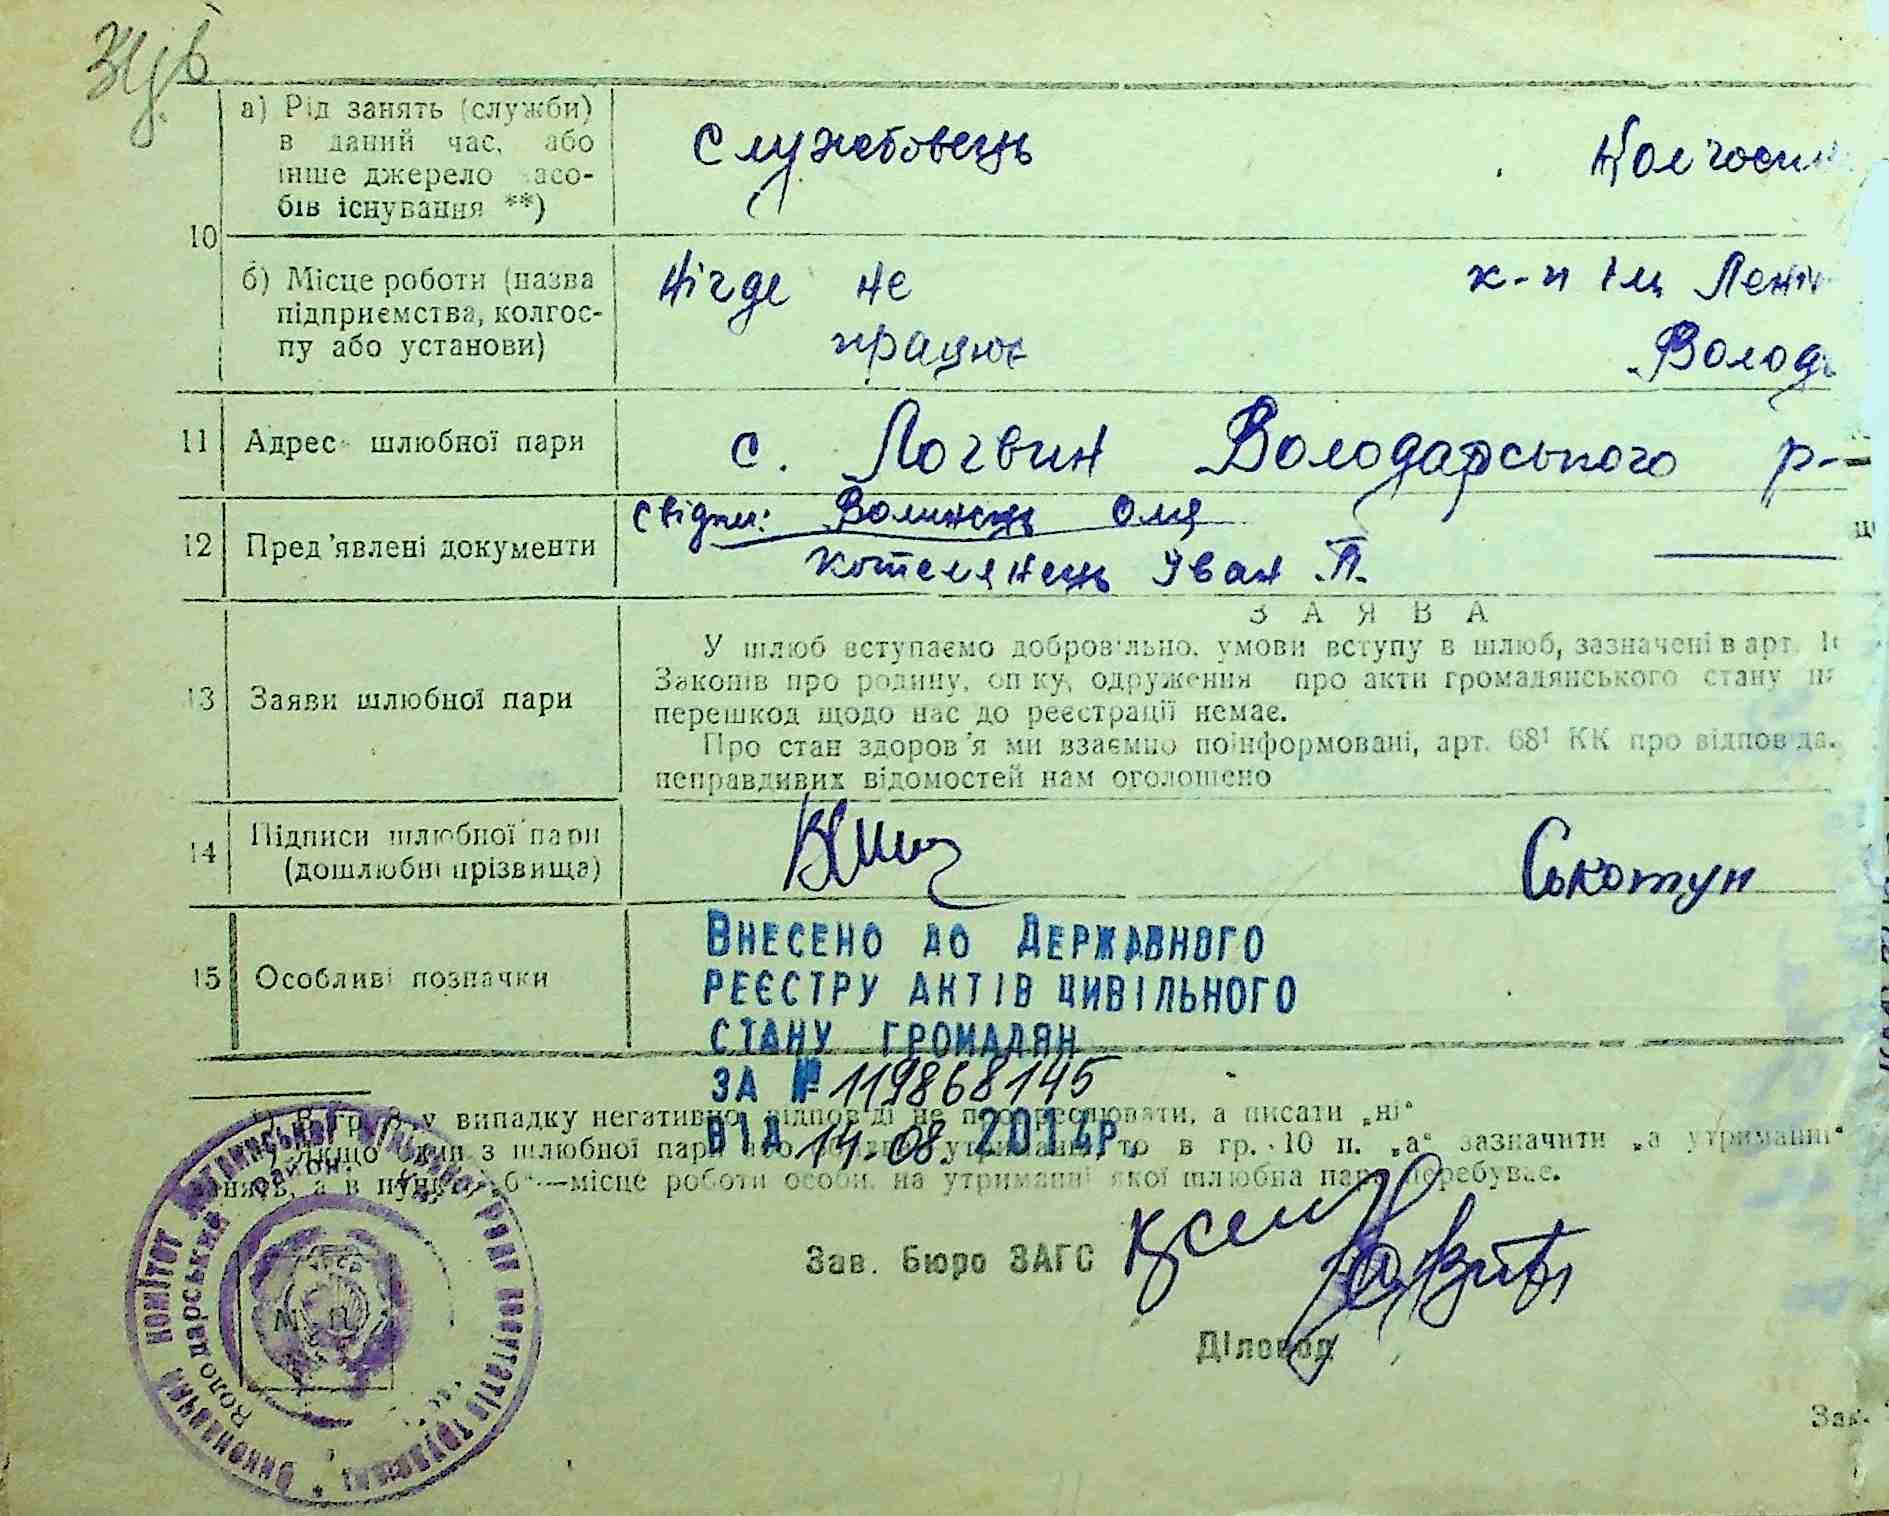 а) Рід занять (служби)
в даний час, або
інше джерело засо-
бів існування **)
Службовець
10
б) Місце роботи (назва
підприємства, колгос-
пу або установи)
Нігде не
працює
к-п ім Лені
Волод
11 Адрес шлюбної пари
с. Логвин Володарського р-
12 Пред'явлені документи
свідки: Волинець Оля
Котелянець Іван П.
ЗАЯВА
13 Заяви шлюбної пари
У шлюб вступаємо добровільно, умови вступу в шлюб, зазначені в арт.
Законів про родину, опіку, одруження про акти громадянського стану
перешкод щодо нас до реєстрації немає.
Про стан здоров'я ми взаємно поінформовані, арт. 68¹ КК про відповіда
неправдивих відомостей нам оголошено
14 Підписи шлюбної пари
(дошлюбні прізвища)
Ськотун
15 Особливі позначки
ВНЕСЕНО ДО ДЕРЖАВНОГО
РЕЄСТРУ АКТІВ ЦИВІЛЬНОГО
СТАНУ ГРОМАДЯН
ЗА № 119868145
ВІД 14.08.2014р.
*) В гр. 8 у випадку негативної відповіді не прокреслювати, а писати „ні“
якщо один з шлюбної пари або утриманні, то в гр. 10 п. „а“ зазначити „а утриманні“
занять, а в пункті „б“—місце роботи особи, на утриманні якої шлюбна пара перебуває.
Зав. Бюро ЗАГС
Діловод
М. П.
Виконавчий комітет
Ради депутатів трудящих
Володарський район
Зак.